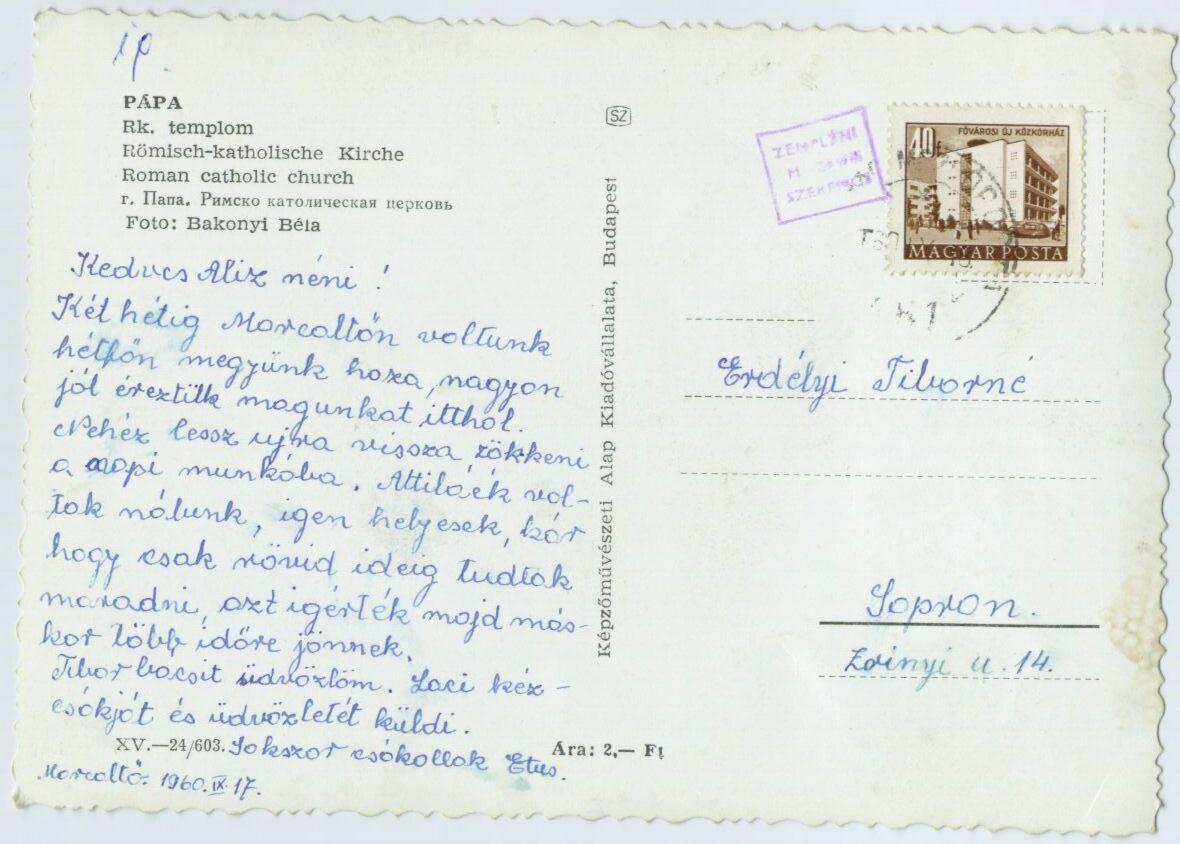 ip.
PÁPA
Rk. templom
Römisch-katholische Kirche
Roman catholic church
г. Папа. Римско католическая церковь
Foto: Bakonyi Béla
Kedves Aliz néni!
Két hétig Marcaltőn voltunk
hétfőn megyünk hoza, nagyon
jól éreztük magunkat itthol.
Nehéz lessz ujra vissza zökkeni
a napi munkába. Attiláék vol-
tak nálunk, igen helyesek, kár
hogy csak rövid ideig tudtak
maradni, azt igérték majd más-
kor több időre jönnek.
Tibor bácsit üdvözlöm. Laci kéz-
csókját és üdvözletét küldi.
Sokszor csókollak Etus.
Marcaltő. 1960. IX. 17.
XV.—24/603.
Ára: 2,— Ft
Képzőművészeti Alap Kiadóvállalata, Budapest
SZ
ZEMPLÉNI
SZERENCS
40f
FŐVÁROSI ÚJ KÖZKÓRHÁZ
MAGYAR POSTA
Erdélyi Tiborné
Sopron.
Zrinyi u. 14.